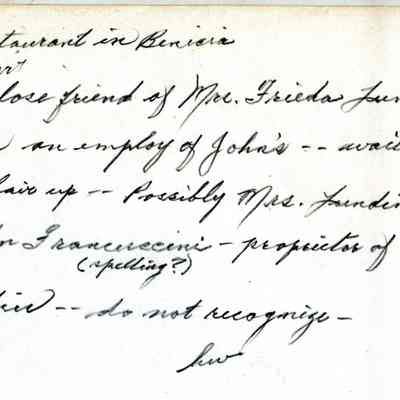 staurant in Benicia
close friend of Mrs. Frieda Lun
an employ of John's -- wait
hair up -- Possibly Mrs. Lundi
Francuccini - proprietor of
(spelling?)
-- do not recognize -
hw